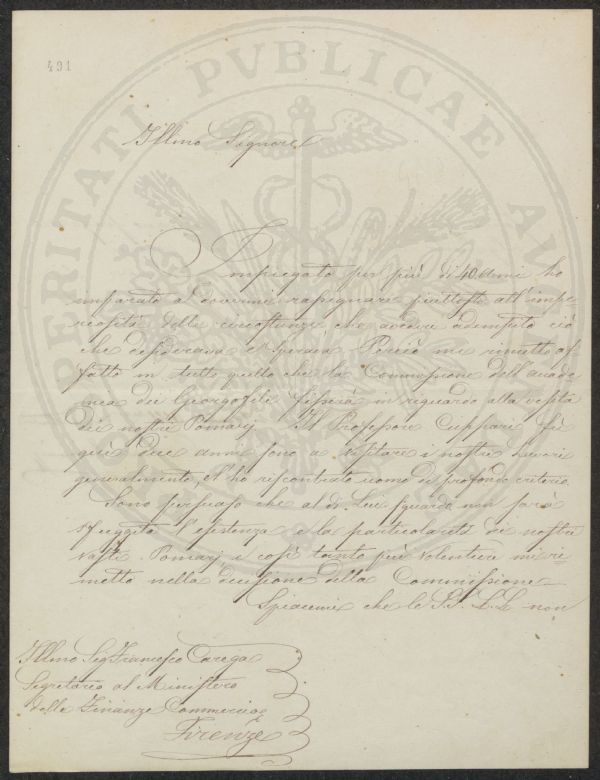 491
Illmo Signore
Impiegato per più di 40 anni ho
imparato a dovermi rassegnare piuttosto all'impe
riosità delle circostanze che avere adempito ciò
che desiderava e sperava. Perciò mi rimetto af
fatto in tutto quello che la Commissione dell'Accade
mia dei Georgofili fisserà in riguardo alla visita
dei nostri Pomarj. Il Professore Cuppari fù
quì due anni sono a visitare i nostri lavori
generalmente, e l'ho riscontrato uomo di profondo criterio.
Sono persuaso che al di Lui sguardo non sarà
sfuggita l'esistenza e la particolarità dei nostri
vasti Pomarj, e così tanto più volentieri mi ri
metto nella decisione della Commissione
Spiacemi che le S.S. L.L. non
Illmo Sig Francesco Carega
Segretario al Ministero
delle Finanze Commercio &
Firenze
PERITATI PVBLICAE AVG